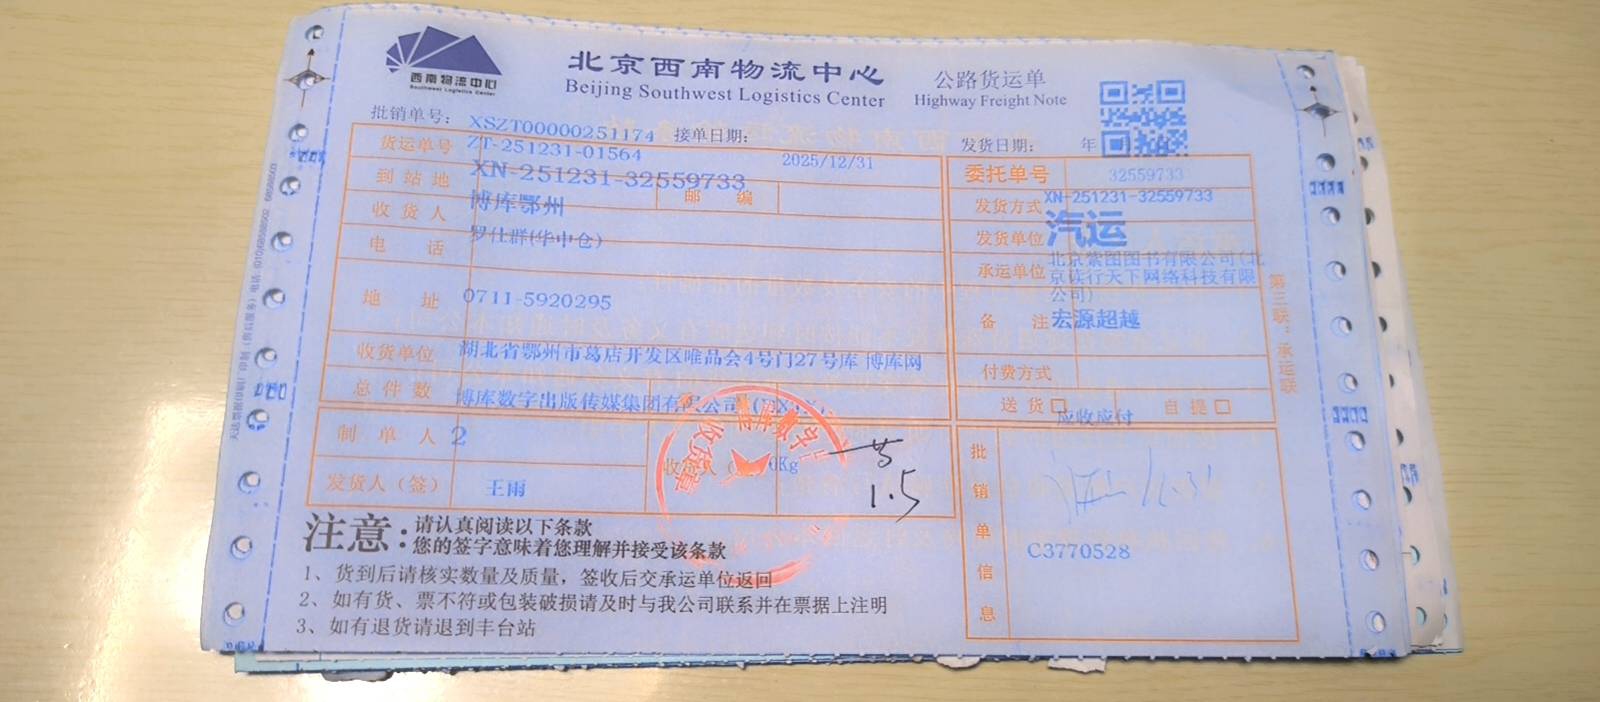 西南物流中心
Southwest Logistics Center
北京西南物流中心
Beijing Southwest Logistics Center
公路货运单
Highway Freight Note
批销单号: XSZT00000251174 接单日期: 2025/12/31 发货日期: 年
货运单号 ZT-251231-01564
XN-251231-32559733
委托单号 32559733
到站地 博库鄂州 邮编
发货方式 XN-251231-32559733
收货人 罗仕群(华中仓)
发货单位 汽运
电话 0711-5920295
承运单位 北京紫图图书有限公司(北
京读行天下网络科技有限
公司)
地址 湖北省鄂州市葛店开发区唯品会4号门27号库 博库网
备注 宏源超越
收货单位 博库数字出版传媒集团有限公司
付费方式 应收应付
总件数 2
送货□ 自提□
制单人 王雨
收货人
0Kg
1.5
发货人(签)
批销单信息
C3770528
注意:
请认真阅读以下条款
您的签字意味着您理解并接受该条款
1、货到后请核实数量及质量，签收后交承运单位返回
2、如有货、票不符或包装破损请及时与我公司联系并在票据上注明
3、如有退货请退到丰台站
第三联：承运联
收货章